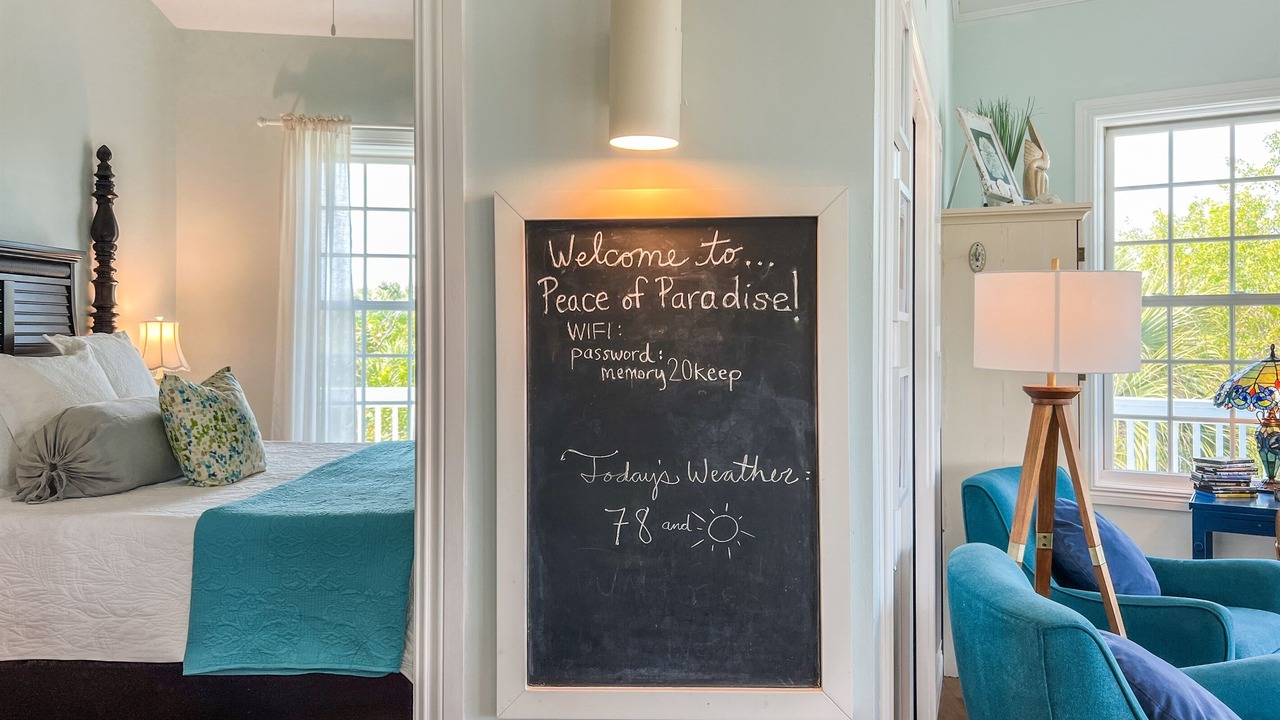 Welcome to...
Peace of Paradise!
WIFI:
password:
memory20keep
Today's Weather:
78 and